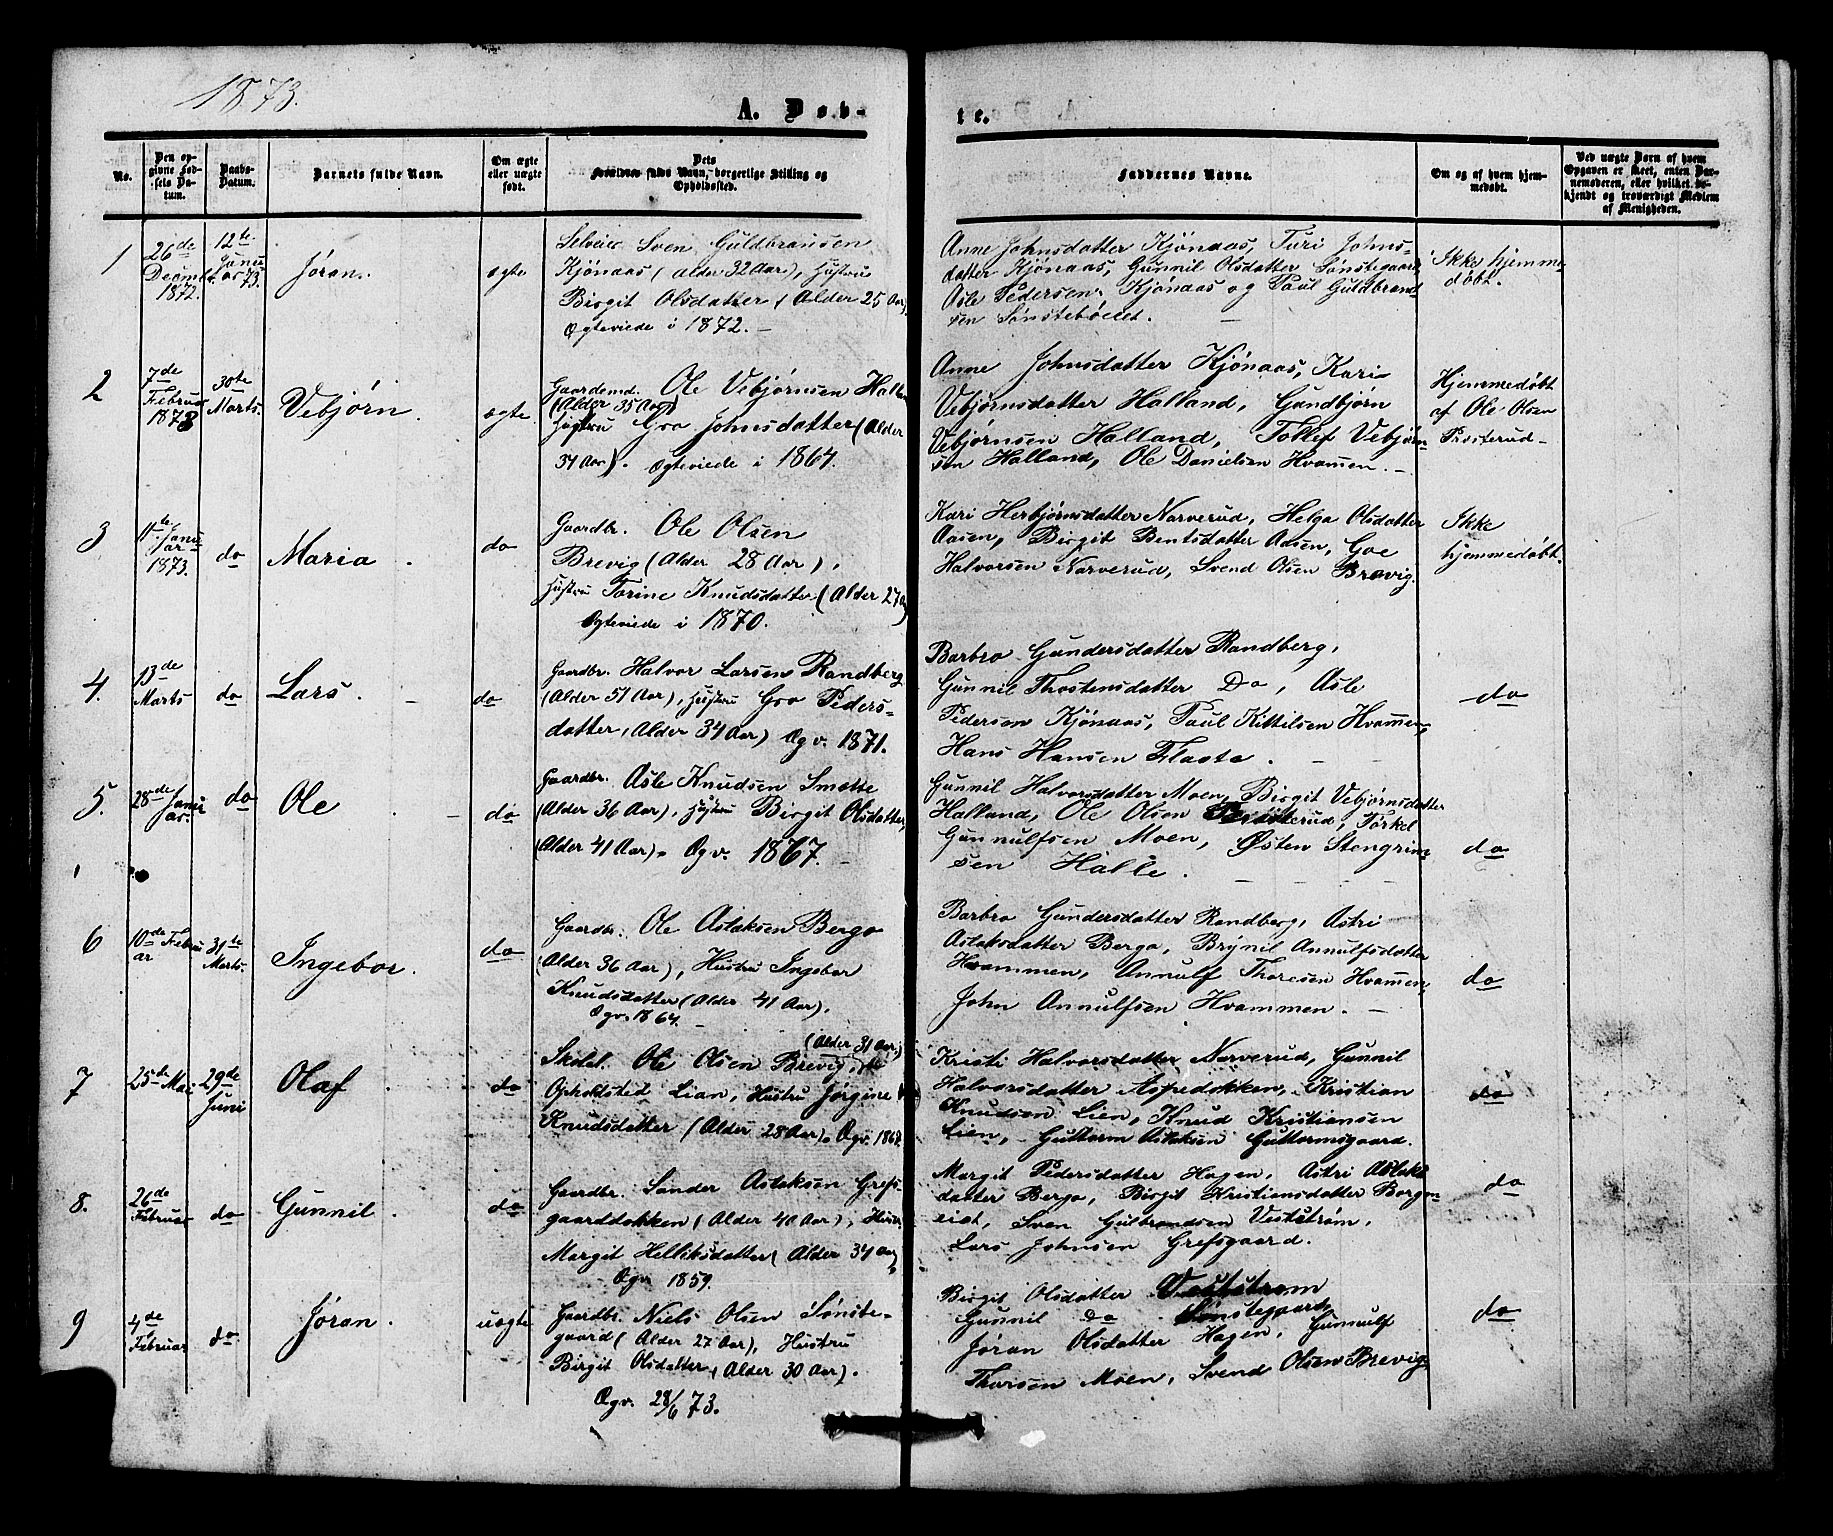 1873.
A. Døb-
te.
No.
Den op-
givne Fød-
sels Da-
tum.
Daabs-
Datum.
Barnets fulde Navn.
Om ægte
eller uægte
født.
Dets
Forældres fulde Navn, borgerlige Stilling og
Opholdssted.
Faddernes Navne.
Om og af hvem hjem-
medøbt.
Ved uægte Børn af hvem
Opgaven er skeet, enten Bar-
nemoderen, eller hvilket be-
kjendt og troværdigt Medlem
af Menigheden.
1
26de
Decmb.
1872.
12te
Janu
ar 73.
Jøran.
ægte
Selveier Sven Guldbransen
Kjønaas (alder 32 Aar), Hustru
Birgit Olsdatter (Alder 25 Aar).
Ægteviede i 1872. -
Anne Johnsdatter Kjønaas, Turi Johns-
datter Kjønaas, Gunnil Olsdatter Sønstegaard,
Asle Pedersen Kjønaas og Paul Guldbrand-
sen Sønstebøeiet. -
Ikke hjemme-
døbt.
2
7de
Februar
1873
30te
Marts.
Vebjørn.
ægte
Gaardmd. Ole Vebjørnsen Halland
(Alder 35 Aar)
Hustru Gro Johnsdatter (Alder
34 Aar). Ægteviede i 1864.
Anne Johnsdatter Kjønaas, Kari
Vebjørnsdatter Halland, Gundbjørn
Vebjørnsen Halland, Tollef Vebjørn-
sen Halland, Ole Danielsen Hvammen. -
Hjemmedøbt
af Ole Olsen
Prosterud -
3
11te Janu
ar
1873.
do
Maria.
do
Gaardbr. Ole Olsen
Brevig (Alder 28 Aar),
Hustru Torine Knudsdatter (Alder 27 Aar)
Ægteviede i 1870.
Kari Herbjørnsdatter Narverud, Helga Olsdatter
Aasen, Birgit Bentsdatter Aasen, Goe
Halvorsen Narverud, Svend Olsen Brevig.
Ikke
hjemmedøbt.
4.
13de
Marts
do
Lars. -
do
Gaardbr. Halvor Larsen Randberg
(Alder 51 Aar), Hustru Gro Peders-
datter, (Alder 34 Aar) Ægv. 1871.
Barbro Gundersdatter Randberg,
Gunnil Thostensdatter Do, Asle
Pedersen Kjønaas, Paul Kittilsen Hvammen,
Hans Hansen Flaata. - -
do
5.
28de Janu
ar.
do
Ole. -
do
Gaardbr. Asle Knudsen Smette
(Alder 36 Aar), Hustru Birgit Olsdatter,
(Alder 41 Aar). Ægv. 1867. -
Gunnil Halvorsdatter Moen, Birgit Vebjørnsdatter
Halland, Ole Olsen Prosterud, Torkel
Gunnulfsen Moen, Østen Stengrim-
sen Halle. - - -
do
6
10de Febru
ar
31te
Marts.
Ingebor.
do
Gaardbr. Ole Aslaksen Bergo
(Alder 36 Aar), Hustru Ingebor
Knudsdatter (Alder 41 Aar),
Ægv. 1864. -
Barbro Gundersdatter Randberg, Astri
Aslaksdatter Bergo, Brynil Annulfsdatter
Hvammen, Annulf Thoresen Hvammen,
John Annulfsen Hvammen. -
do
7
25de Mai
29de
Juni
Olaf.
do
(Alder 31 Aar)
Skolel. Ole Olsen Brevig,
Opholdsted Lian, Hustru Jørgine
Knudsdatter (Alder 28 Aar). Ægv.
Kristi Halvorsdatter Narverud, Gunnil
Halvorsdatter Aspedokken, Kristian
Knudsen Lien, Knud Kristiansen
Lien, Guttorm Aslaksen Guttormsgaard.
do
8.
26de
Februar
do
Gunnil.
do
Gaardbr. Sander Aslaksen Grefs-
gaarddokken (Alder 40 Aar), Hustru
Margit Helliksdatter (Alder 34 Aar)
Ægv 1859.
Margit Pedersdatter Hagen, Astri Aslaks
datter Bergo, Birgit Kristiansdatter Borgen
eiet, Sven Gulbrandsen Veststrøm,
Lars Johnsen Grefsgaard.
do
9
4de
Februar
do
Jøran.
uægte
Gaardbr. Niels Olsen Sønste-
gaard (Alder 27 Aar), Hustru
Birgit Olsdatter (Alder 30 Aar).
Ægv. 28/6 73.
Birgit Olsdatter Veststrøm
Gunnil Do Sønstegaard,
Jøran Olsdatter Hagen, Gunnulf
Thorsen Moen, Svend Olsen Brevig
do